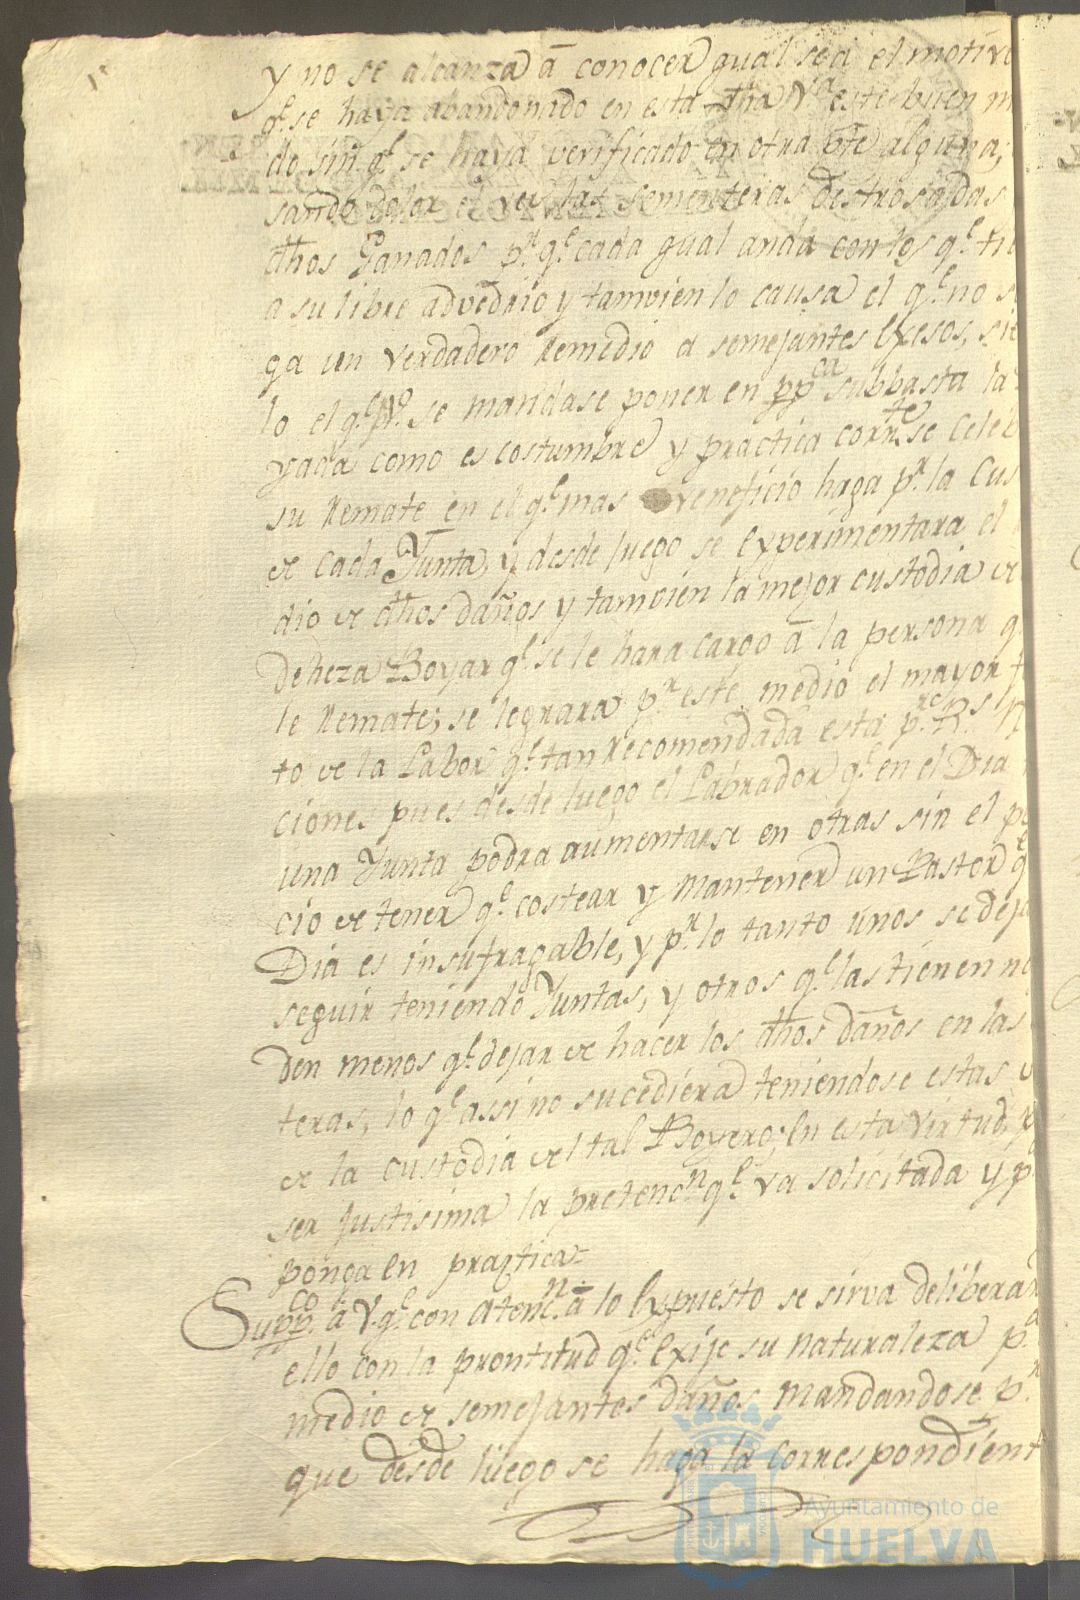 y no se alcanza â conocer qual sea el motivo
qe. se haya abandonado en esta dha Va este buen m
do sin qe. se haya verificado en otra pte alguna;
sando dolor el ver las sementeras destrosadas
dhos Ganados pr. qe. cada qual anda con los qe. tie
a su libre advedrio y tamvien lo causa el qe. no s
ga un verdadero Remedio a semejantes Exesos, sie
lo el qe. se mandase poner en ppca subbasta la
yada como es costumbre y practica corrte. se Celeb
su Remate en el qe. mas veneficio haga pr. la Cus
de cada Yunta, y desde luego se Experimentara el
dio de dhos daños y tamvien la mejor custodia de
Deheza Boyar qe. se le hara cargo â la persona q
le Remate; se logrará pr. este medio el mayor f
to de la Labor qe. tan Recomendada esta pr. Rs
ciones pues desde luego el Labrador qe. en el Dia
una Yunta podra aumentarse en otras sin el pe
cio de tener qe. costear y mantener un Pastor qe
Dia es insufragable, y pr. lo tanto unos se deja
seguir teniendo Yuntas, y otros qe. las tienen no
den menos qe. dejar de hacer los dhos daños en las
teras, lo qe. assi no sucediera teniendose estas
de la custodia del tal Boyero; en esta virtud, p
ser justisima la pretencn. qe. va solicitada y p
ponga en practica=
Suppco. â V. qe. con atencn. â lo Expuesto se sirva deliberar
ello con la prontitud qe. Exije su naturaleza pa.
medio de semejantes daños, mandandose pr.
que desde luego se haga la correspondient
Ayuntamiento de
HUELVA